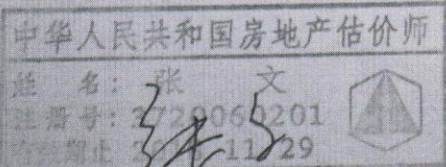 中华人民共和国房地产估价师
姓 名: 张 文
注册号: 3720060201
11 29